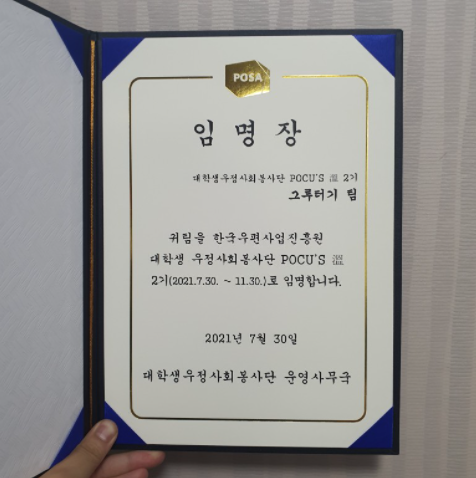 POSA
임명장
대학생우정사회봉사단 POCU'S 2기
그루터기 팀
귀팀을 한국우편사업진흥원
대학생 우정사회봉사단 POCU'S
2기(2021.7.30. ~ 11.30.)로 임명합니다.
2021년 7월 30일
대학생우정사회봉사단 운영사무국